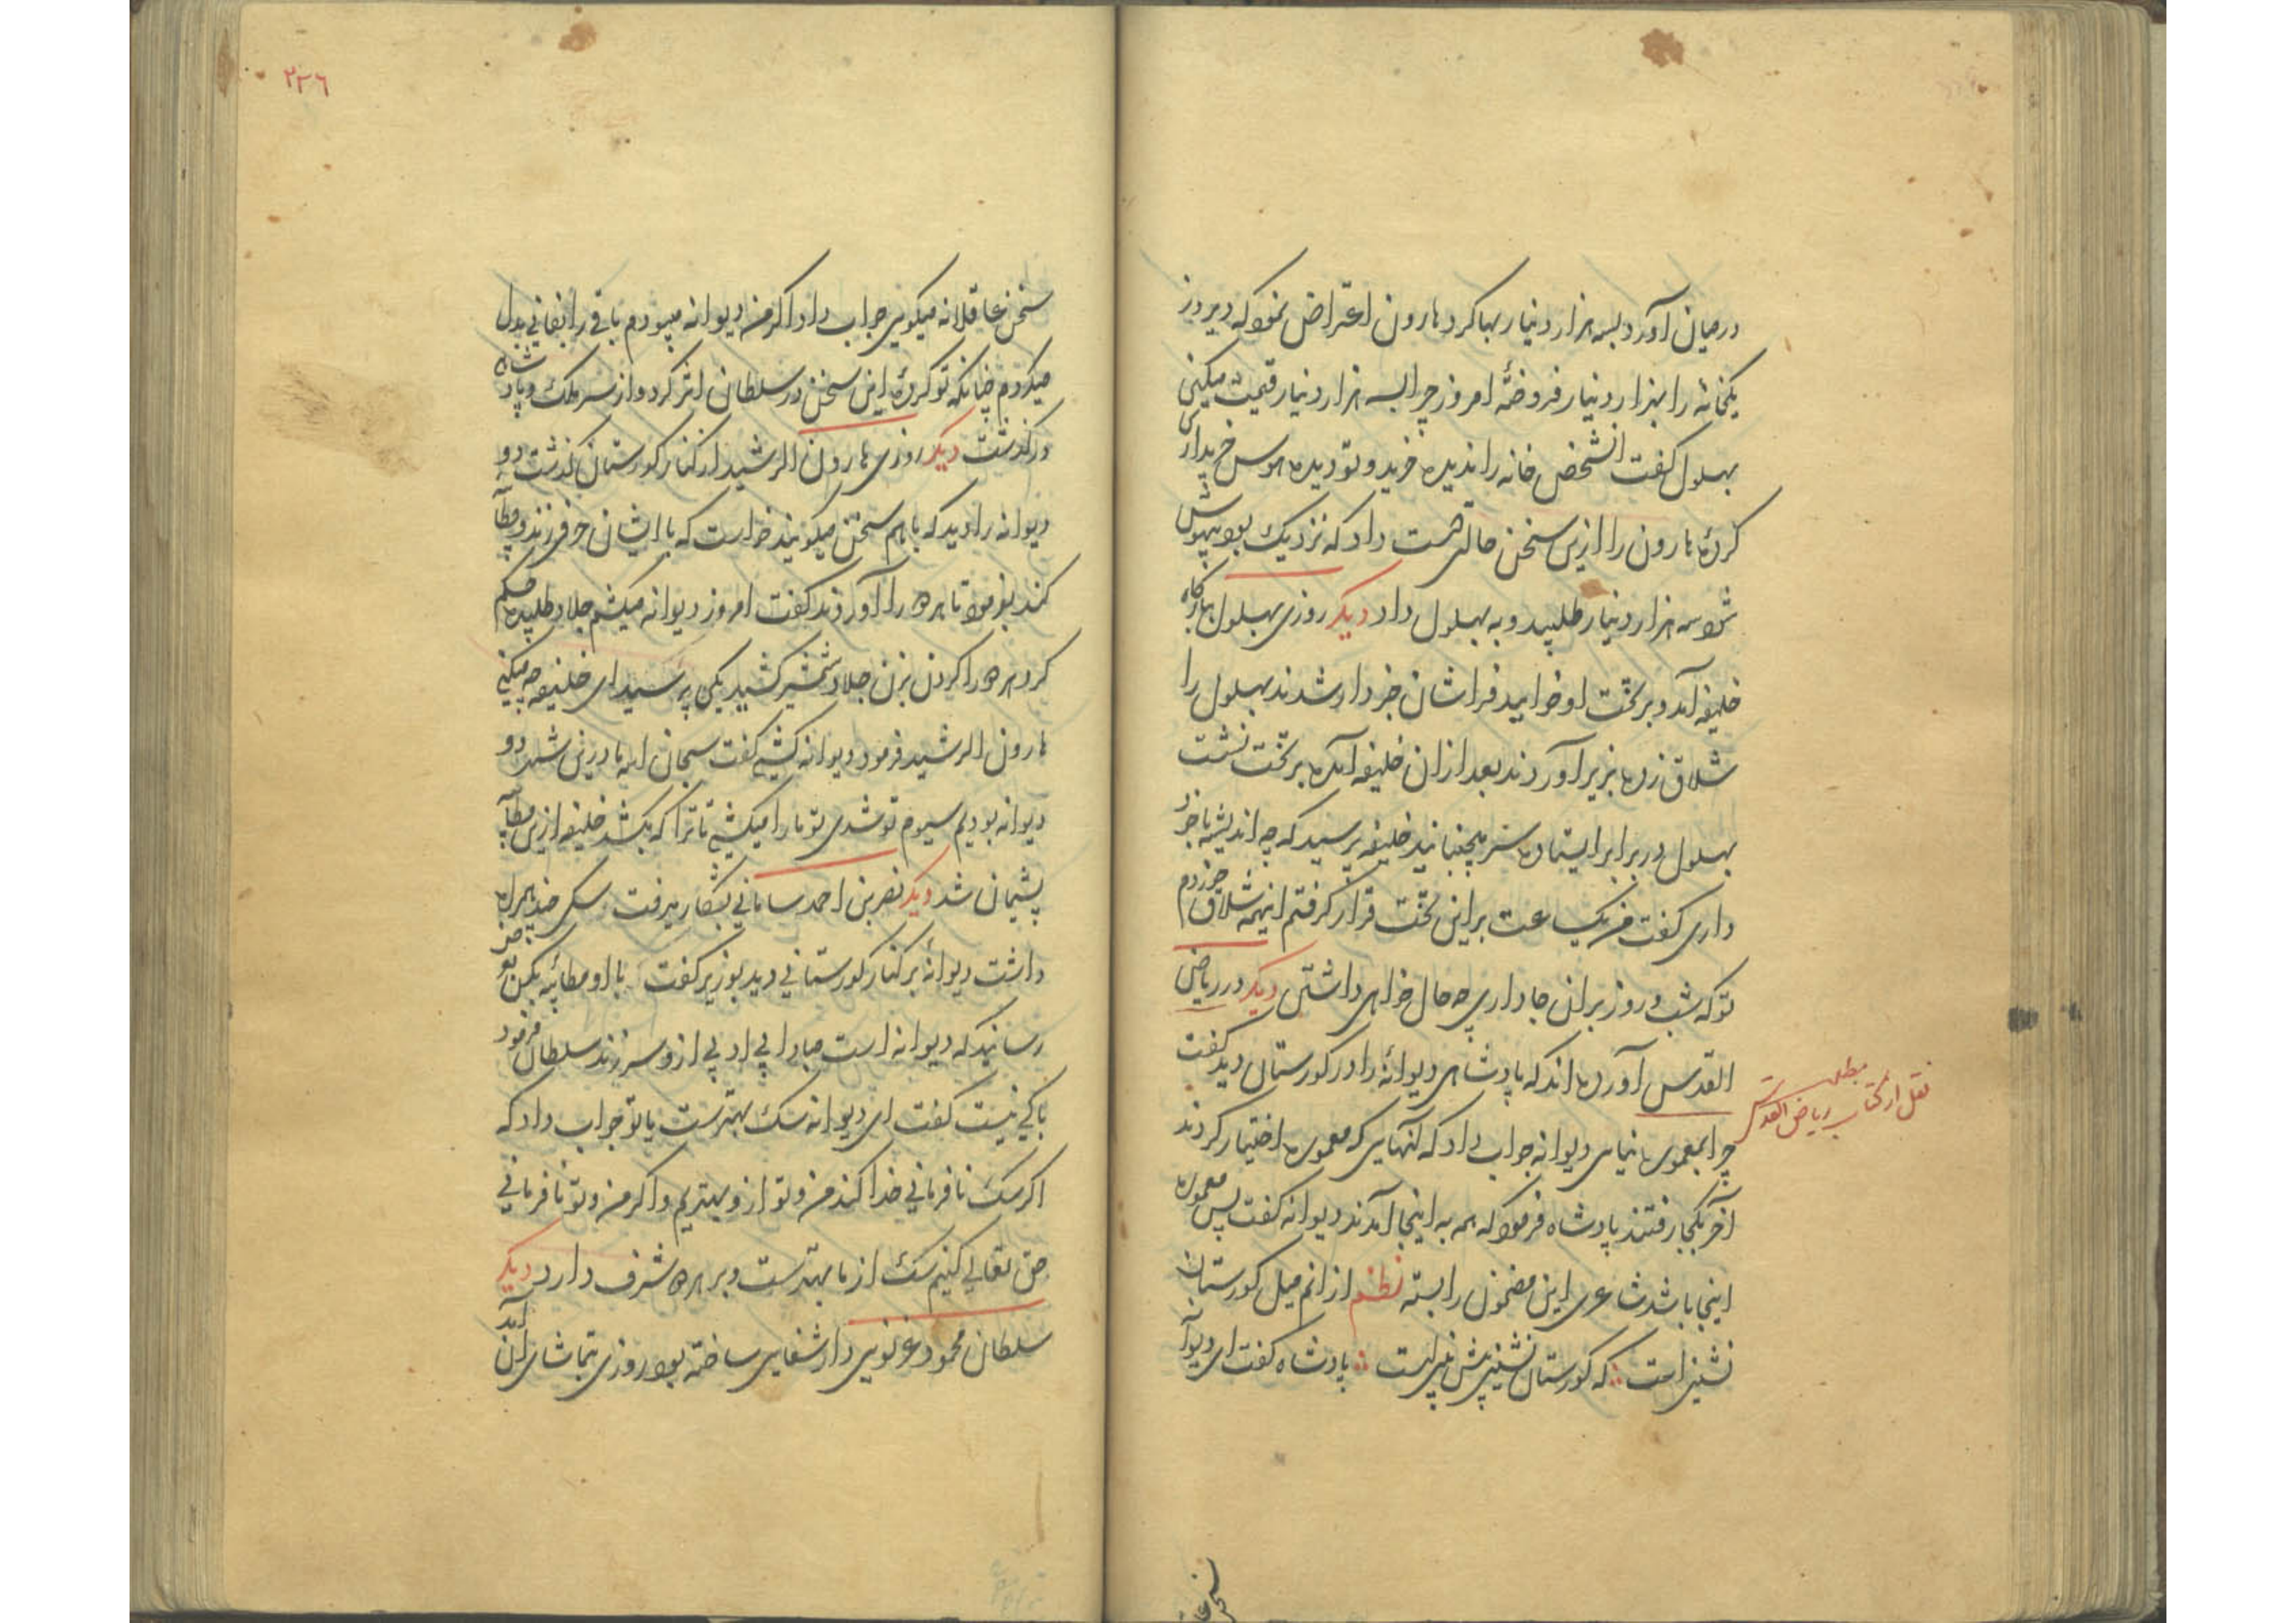 درمیان آورد بسه هزار دینار بها کرد هارون اعتراض نمود که دیروز
یکخانه را بهزار دینار فروختهٔ امروز چرا بسه هزار دینار قیمت میکنی
بهلول گفت انشخص خانه را ندیده خرید و تو دیده هوس خریداری
کردهٔ هارون را ازین سخن حالتی دست داد که نزدیک بود بیهوش
شود سه هزار دینار طلبید و به بهلول داد دیکر روزی بهلول ببارگاه
خلیفه آمد و بر تخت او خوابید فراشان خبردار شدند بهلول را
شلاق زده بزیر آوردند بعد ازان خلیفه آمده بر تخت نشت
بهلول در برابر ایستاده سر میجنبانید خلیفه پرسید که چه اندیشه با خود
داری کفت من یک ساعت براین تخت قرار کرفتم اینهمه شلاق خوردم
توکه شب و روز بران جا داری چه حال خواهی داشتن دیکر در ریاض
القدس آورده اند که پادشاهی دیوانهٔ را در کورستان دید کفت
چرا بمعموره نیمایی دیوانه جواب داد که آنهایی که معموره اختیار کردند
آخر بکجا رفتند پادشاه فرمود که همه به اینجا آمدند دیوانه کفت پس معموره
اینجا باشد شاعری این مضمون را بسته نظم ازانم میل کورستان
نشینی است که کورستان نشینی پیش بینی است پادشاه کفت ای دیوانه
مطلب
نقل از کتاب ریاض القدس
سخن عا
٢٣٦
سخن عاقلانه میکویی جواب داد اکر من دیوانه میبودم باقی را بفانی بدل
میکردم چنانکه تو کردهٔ این سخن در سلطان اثر کرد و از سر ملک و پادشاهی
درکذشت دیکر روزی هارون الرشید از کنار کورستان کذشت دو
دیوانه را دید که باهم سخن میکویند خواست که با ایشان حرفی زند و مطایبه
کند بفرمود تا هر دو را آوردند کفت امروز دیوانه میکشم جلاد طلبیده حکم
کرد هر دو را کردن بزن جلاد شمشیر کشید یکی پرسید ای خلیفه چه میکنی
هارون الرشید فرمود دیوانه کشی کفت سبحان الله ما درین شهر دو
دیوانه بودیم سیوم تو شدی تو ما را میکشی تا ترا که بکشد خلیفه ازین مطایبه
پشیمان شد دیکر نصر بن احمد سامانی بشکار میرفت سکی چند همراه
داشت دیوانهٔ بر کنار کورستانی دید بوزیر کفت با او مطائبه بکن بعرض
رسانید که دیوانه است مبادا بی ادبی ازو سر زند سلطان فرمود
باکی نیست کفت ای دیوانه سک بهترست یا تو جواب داد که
اکر سک نافرمانی خدا کند من و تو ازو بهتریم و اکر من و تو نافرمانی
حق تعالی کنیم سک از ما بهترست و بر هر دو شرف دارد دیکر
سلطان محمود غزنویی دار شفایی ساخته بود روزی بتماشای آن آمد